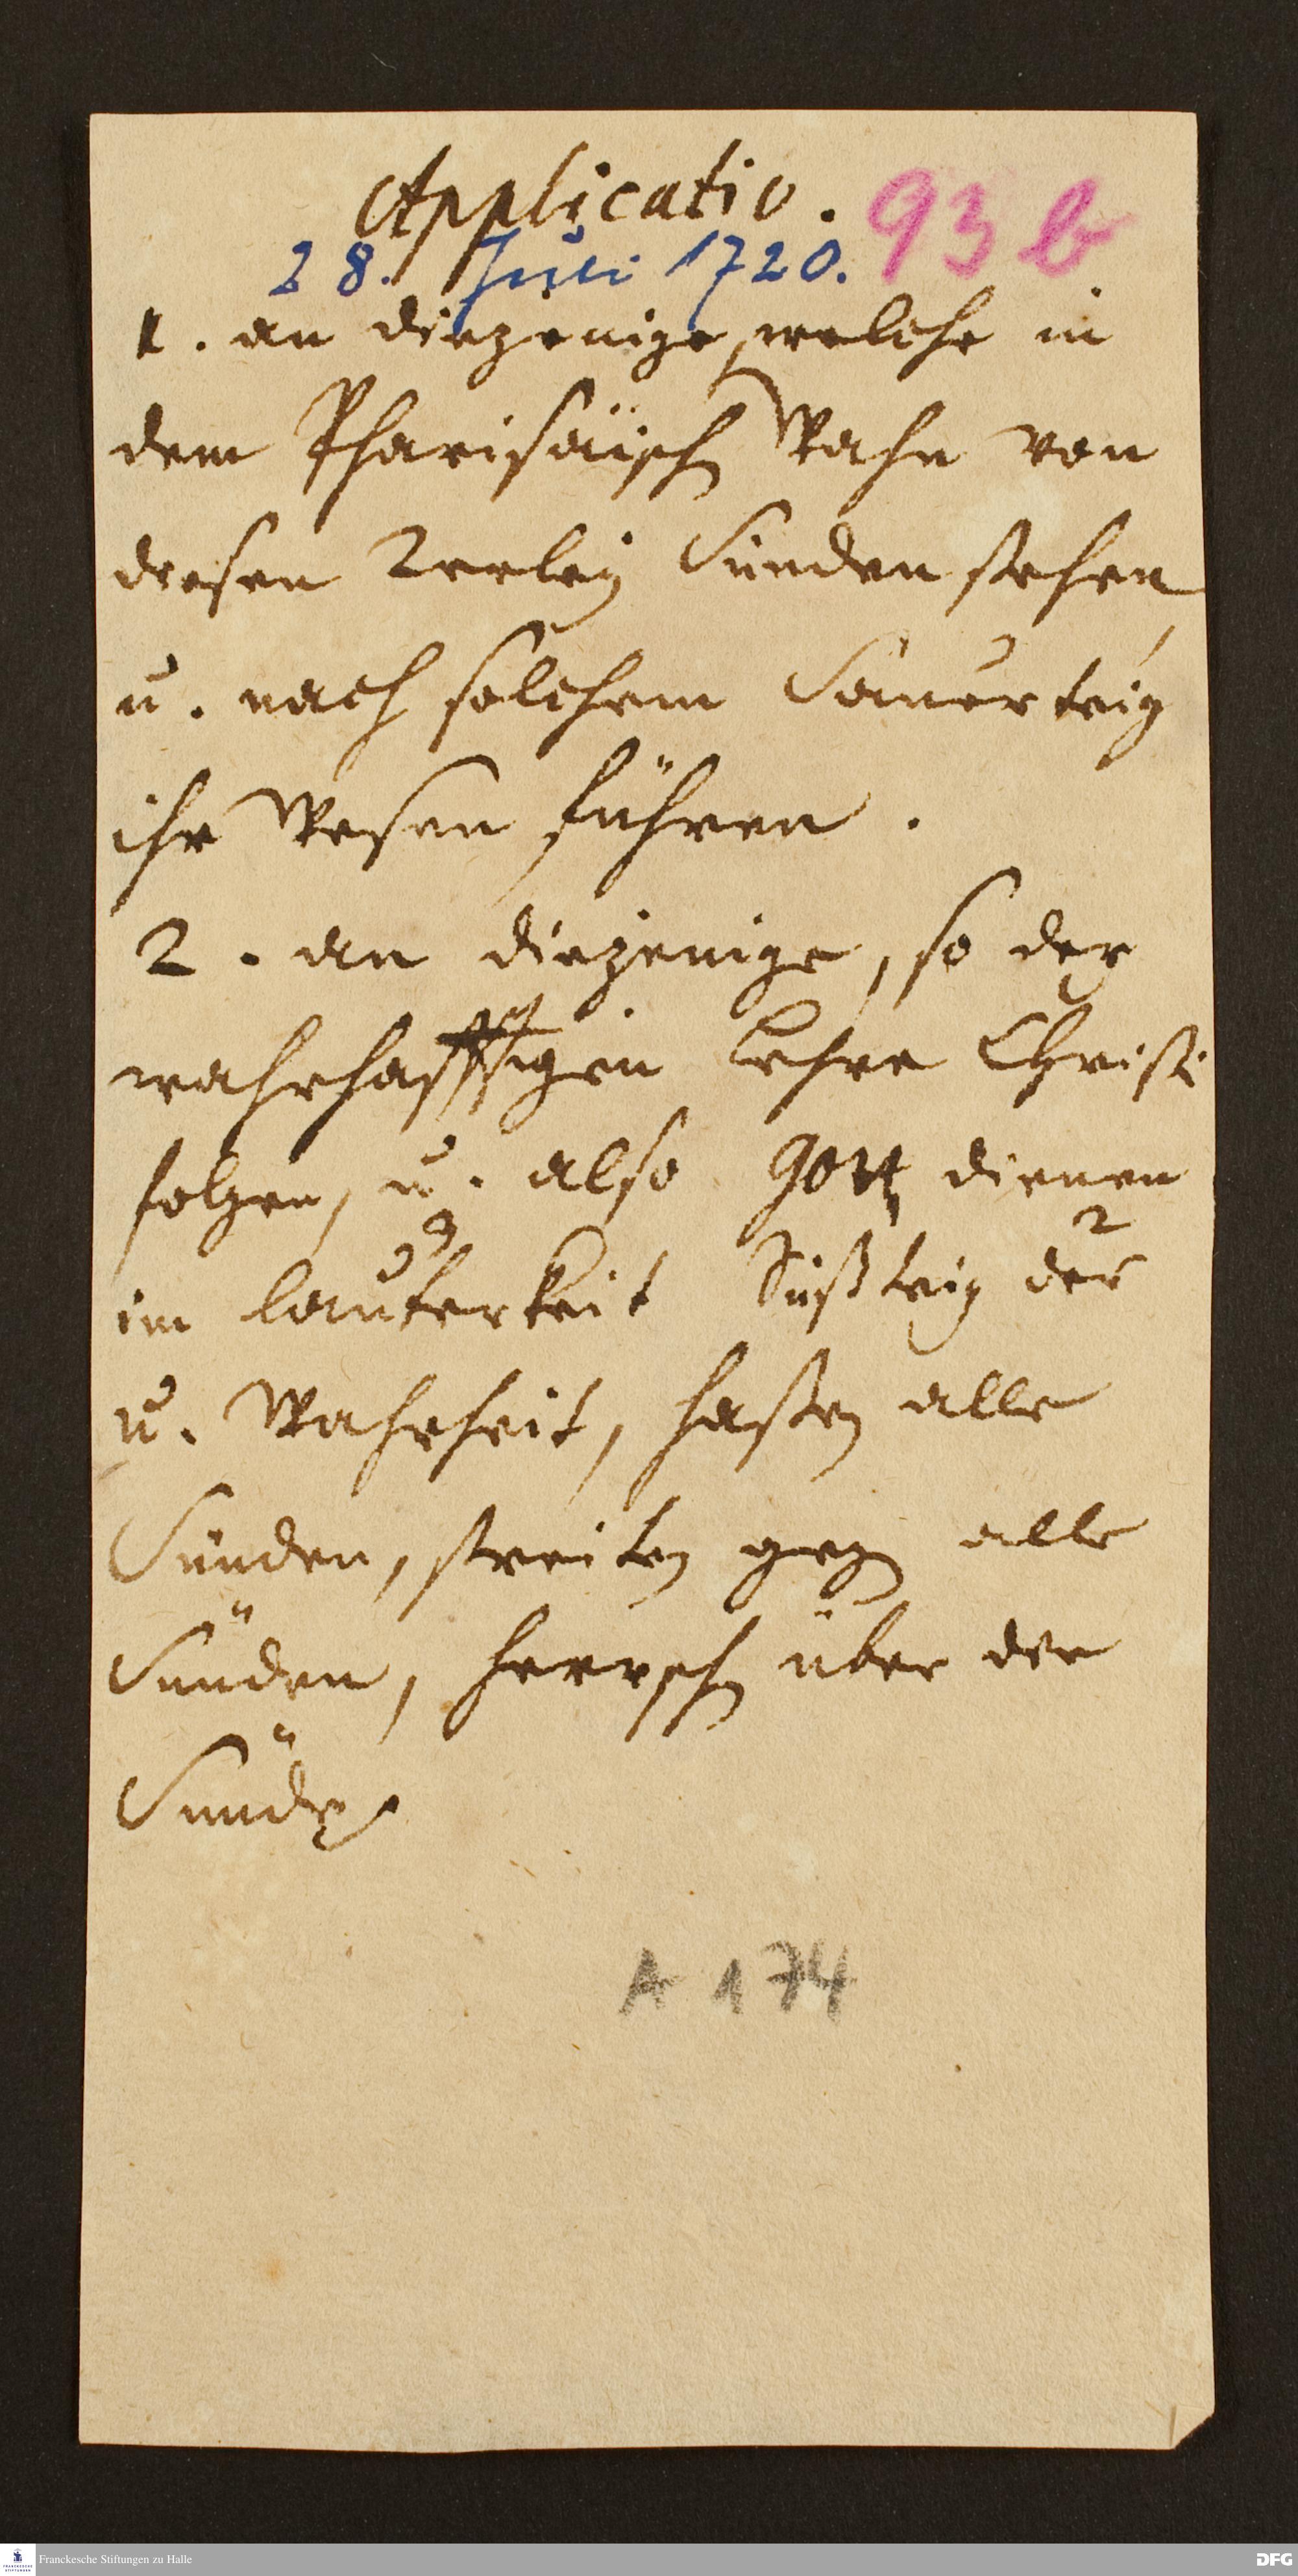 Applicatio. 93 b
28. Juli 1720.
1. an diejenige, welche in
dem Pharisäisch Wahn von
diesen 2erley Sünden stehen,
u. nach solchem Sauerteig
ihr Wesen führen.
2. an diejenige, so der
wahrhafftigen Lehre Christi
folgen, u. also Gott dienen
im lauterkeit Süßteig der
u. Wahrheit, haßen alle
Sünden, streiten gegen alle
Sünden, herrschen über die
Sünde.
A 174
Franckesche Stiftungen zu Halle
DFG